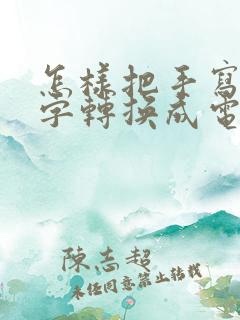 怎樣把手寫
字轉換成電
陳志超
未經同意禁止轉載